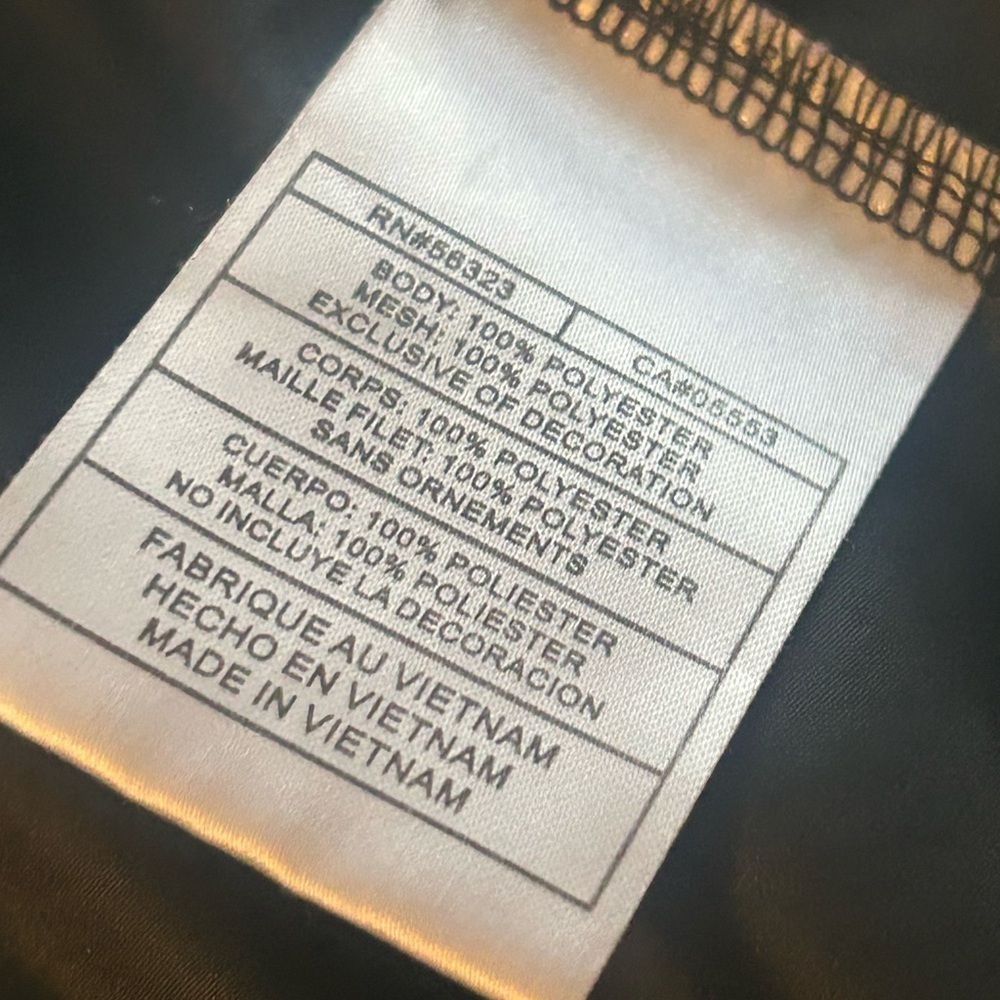 RN#56323 CA#05553
BODY: 100% POLYESTER
MESH: 100% POLYESTER
EXCLUSIVE OF DECORATION
CORPS: 100% POLYESTER
MAILLE FILET: 100% POLYESTER
SANS ORNEMENTS
CUERPO: 100% POLIESTER
MALLA: 100% POLIESTER
NO INCLUYE LA DECORACION
FABRIQUE AU VIETNAM
HECHO EN VIETNAM
MADE IN VIETNAM